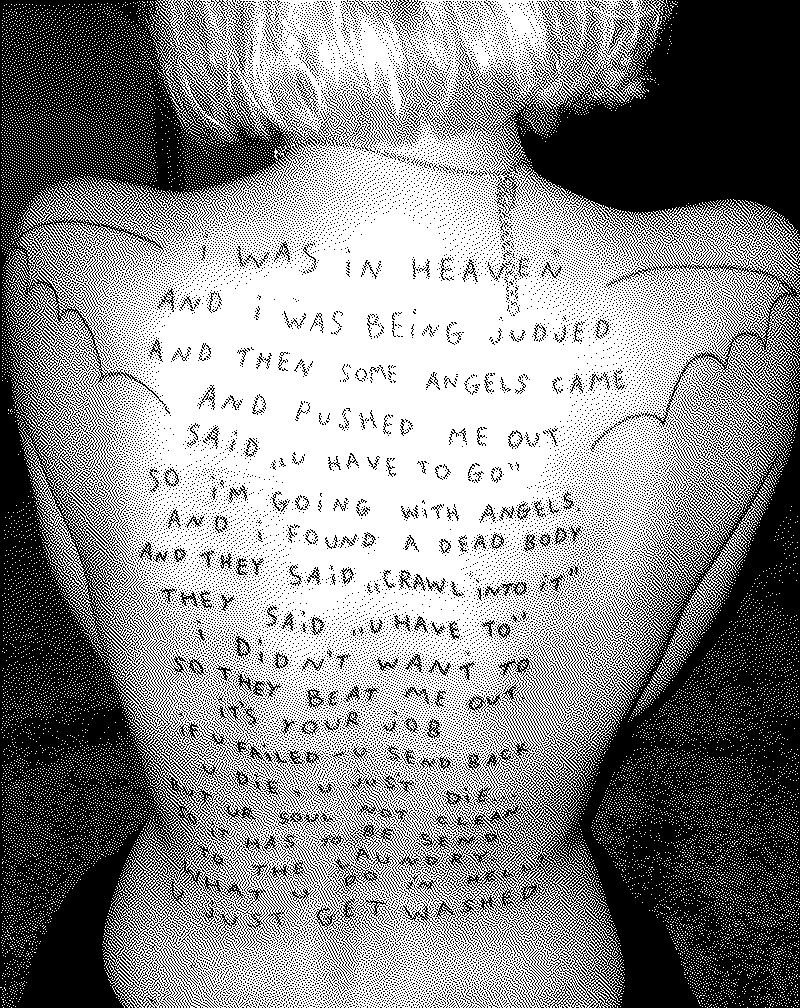 i WAS iN HEAVEN
AND i WAS BEiNG jUDjED
AND THEN SOME ANGELS CAME
AND PUSHED ME OUT
SAiD „U HAVE TO GO"
SO i'M GOiNG WiTH ANGELS
AND i FOUND A DEAD BODY
AND THEY SAiD „CRAWL iNTO iT"
THEY SAiD „U HAVE TO"
i DiDN'T WANT TO
SO THEY BEAT ME OUT
iT'S YOUR JOB
iF U FAiLED - U SEND BACK
U DiE - U JUST DiE
BUT UR SOUL NOT CLEAN
iT HAS TO BE SEND
TO THE LAUNDRY
WHAT U DO iN HELL
U JUST GET WASHED